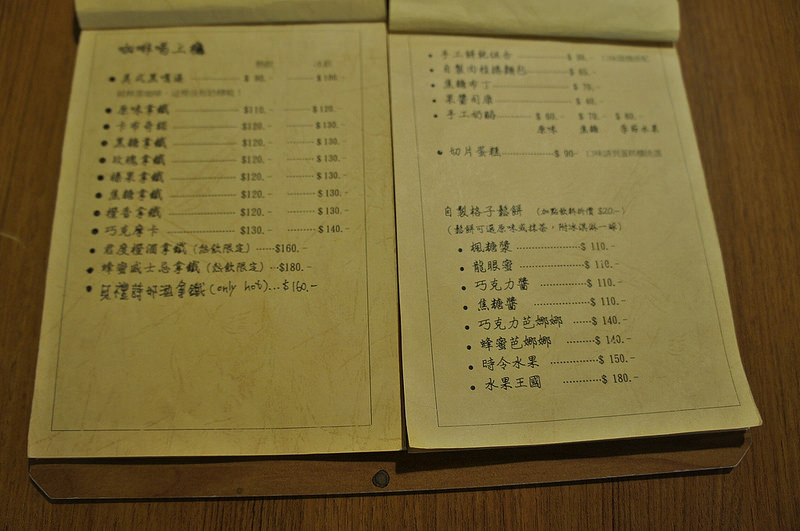 咖啡喝上癮
熱飲 冰飲
美式黑咖啡 $ 90.- $100.-
原味拿鐵 $110.- $120.-
卡布奇諾 $120.- $130.-
黑糖拿鐵 $120.- $130.-
玫瑰拿鐵 $120.- $130.-
榛果拿鐵 $120.- $130.-
焦糖拿鐵 $120.- $130.-
橙香拿鐵 $120.- $130.-
巧克摩卡 $130.- $140.-
君度橙酒拿鐵 (熱飲限定) $160.-
蜂蜜威士忌拿鐵 (熱飲限定) $180.-
貝禮詩奶酒拿鐵 (only hot) $160.-
手工餅乾拼盤
自製肉桂捲麵包
焦糖布丁 $ 70.-
果醬司康 $ 60.-
手工奶酪 $ 60.- $ 70.- $ 80.-
原味 焦糖 季節水果
切片蛋糕 $ 90-
自製格子鬆餅 (加點飲料折價 $20.-)
(鬆餅可選原味或抹茶,附冰淇淋一球)
楓糖漿 $ 110.-
龍眼蜜 $ 110.-
巧克力醬 $ 110.-
焦糖醬 $ 110.-
巧克力芭娜娜 $ 140.-
蜂蜜芭娜娜 $ 140.-
時令水果 $ 150.-
水果王國 $ 180.-